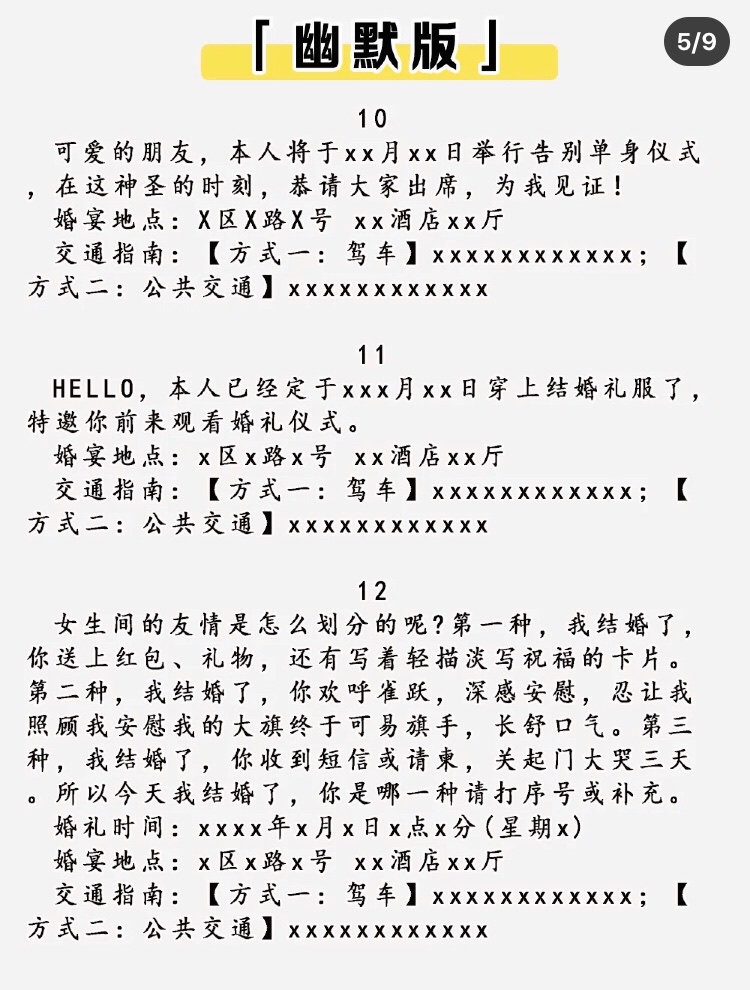 「幽默版」
5/9
10
可爱的朋友，本人将于xx月xx日举行告别单身仪式
，在这神圣的时刻，恭请大家出席，为我见证！
婚宴地点：X区X路X号 xx酒店xx厅
交通指南：【方式一：驾车】xxxxxxxxxxxx；【
方式二：公共交通】xxxxxxxxxxxx
11
HELLO，本人已经定于xxx月xx日穿上结婚礼服了，
特邀你前来观看婚礼仪式。
婚宴地点：x区x路x号 xx酒店xx厅
交通指南：【方式一：驾车】xxxxxxxxxxxx；【
方式二：公共交通】xxxxxxxxxxxx
12
女生间的友情是怎么划分的呢?第一种，我结婚了，
你送上红包、礼物，还有写着轻描淡写祝福的卡片。
第二种，我结婚了，你欢呼雀跃，深感安慰，忍让我
照顾我安慰我的大旗终于可易旗手，长舒口气。第三
种，我结婚了，你收到短信或请柬，关起门大哭三天
。所以今天我结婚了，你是哪一种请打序号或补充。
婚礼时间：xxxx年x月x日x点x分(星期x)
婚宴地点：x区x路x号 xx酒店xx厅
交通指南：【方式一：驾车】xxxxxxxxxxxx；【
方式二：公共交通】xxxxxxxxxxxx